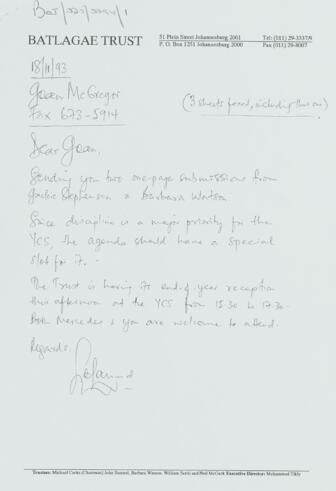 BATLAGAE TRUST
51 Plein Street Johannesburg 2001
P. O. Box 1251 Johannesburg 2000
Tel: (011) 29-3337/9
Fax (011) 29-8007
18/11/93
Joan McGregor
Fax 673-5914
(3 sheets faxed, including this one)
Dear Joan,
Sending you two one-page submissions from
Stephenson & Barbara Watson
Since discipline is a major priority for the
YCS, the agenda should have a special
slot for it.
The Trust is having its end-of-year reception
this afternoon at the YCS from 15.30 to 17.30.
Both Mercedes & you are welcome to attend.
Regards.
Trustees: Michael Corke (Chairman) John Samuel, Barbara Watson, William Smith and Neil McGurk Executive Director: Mohammed Tikly